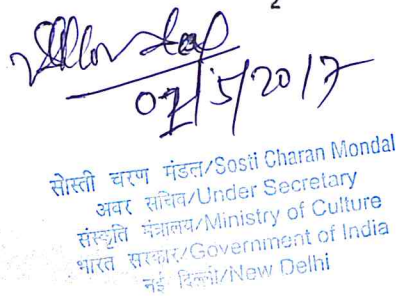 2
07/5/2017
सोस्ती चरण मंडल/Sosti Charan Mondal
अवर सचिव/Under Secretary
संस्कृति मंत्रालय/Ministry of Culture
भारत सरकार/Government of India
नई दिल्ली/New Delhi